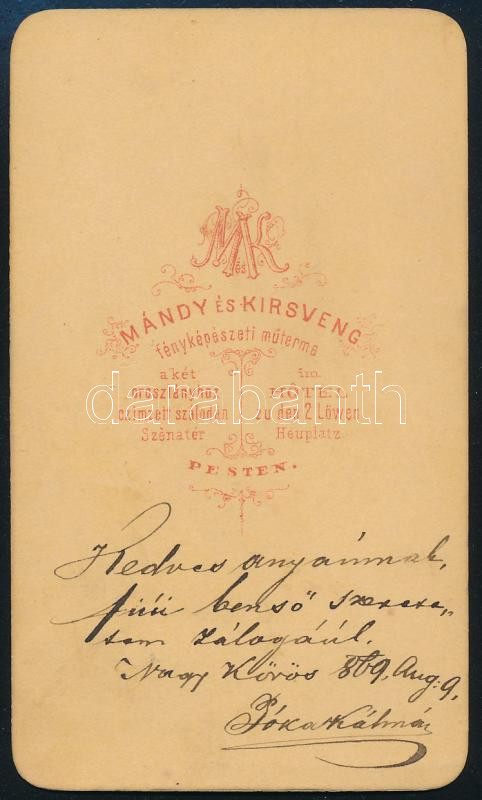 MK
és
MÁNDY ÉS KIRSVENG
fényképészeti műterme
a két
oroszlányhoz
czimzett szálodán
Szénatér
im
HÔTEL
zu den 2 Löwen
Heuplatz
PESTEN.
darabanth
Kedves anyáimnak,
fiúi benső szerete„
tem zálogáúl.
Nagy Kőrös 869. Aug. 9.
Póka Kálmán